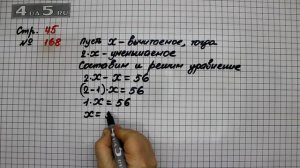 4allS.RU
Стр. 45
№ 168
Пусть x - вычитаемое, тогда
2·x - уменьшаемое
Составим и решим уравнение
2·x - x = 56
(2-1)·x = 56
1·x = 56
x =